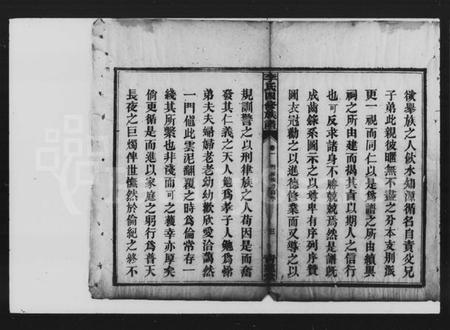 俾舉族之人飲水知源循名自責父兄
子弟此親彼暱無不盡之分本支別派
更一視而同仁以是為譜之所由續與
祠之所由建而揭其責以期人之信行
也可反求諸身不勝兢兢焉然是譜既
成齒錄系圖示之以尊卑有序列序贊
圖衣冠勸之以進德修業而又導之以
李氏四修族譜
規訓警之以刑律族之人苟因是而奮
發其仁義之天人勉為孝子人勉為悌
弟夫夫婦婦老老幼幼歡欣愛洽藹然
一門催此雲泥翻覆之時為倫常存一
綫其所繫也非淺而可之義幸亦厚矣
倘更循是而進以家庭之躬行為普天
長夜之巨燭俾世憮然於倫紀之終不